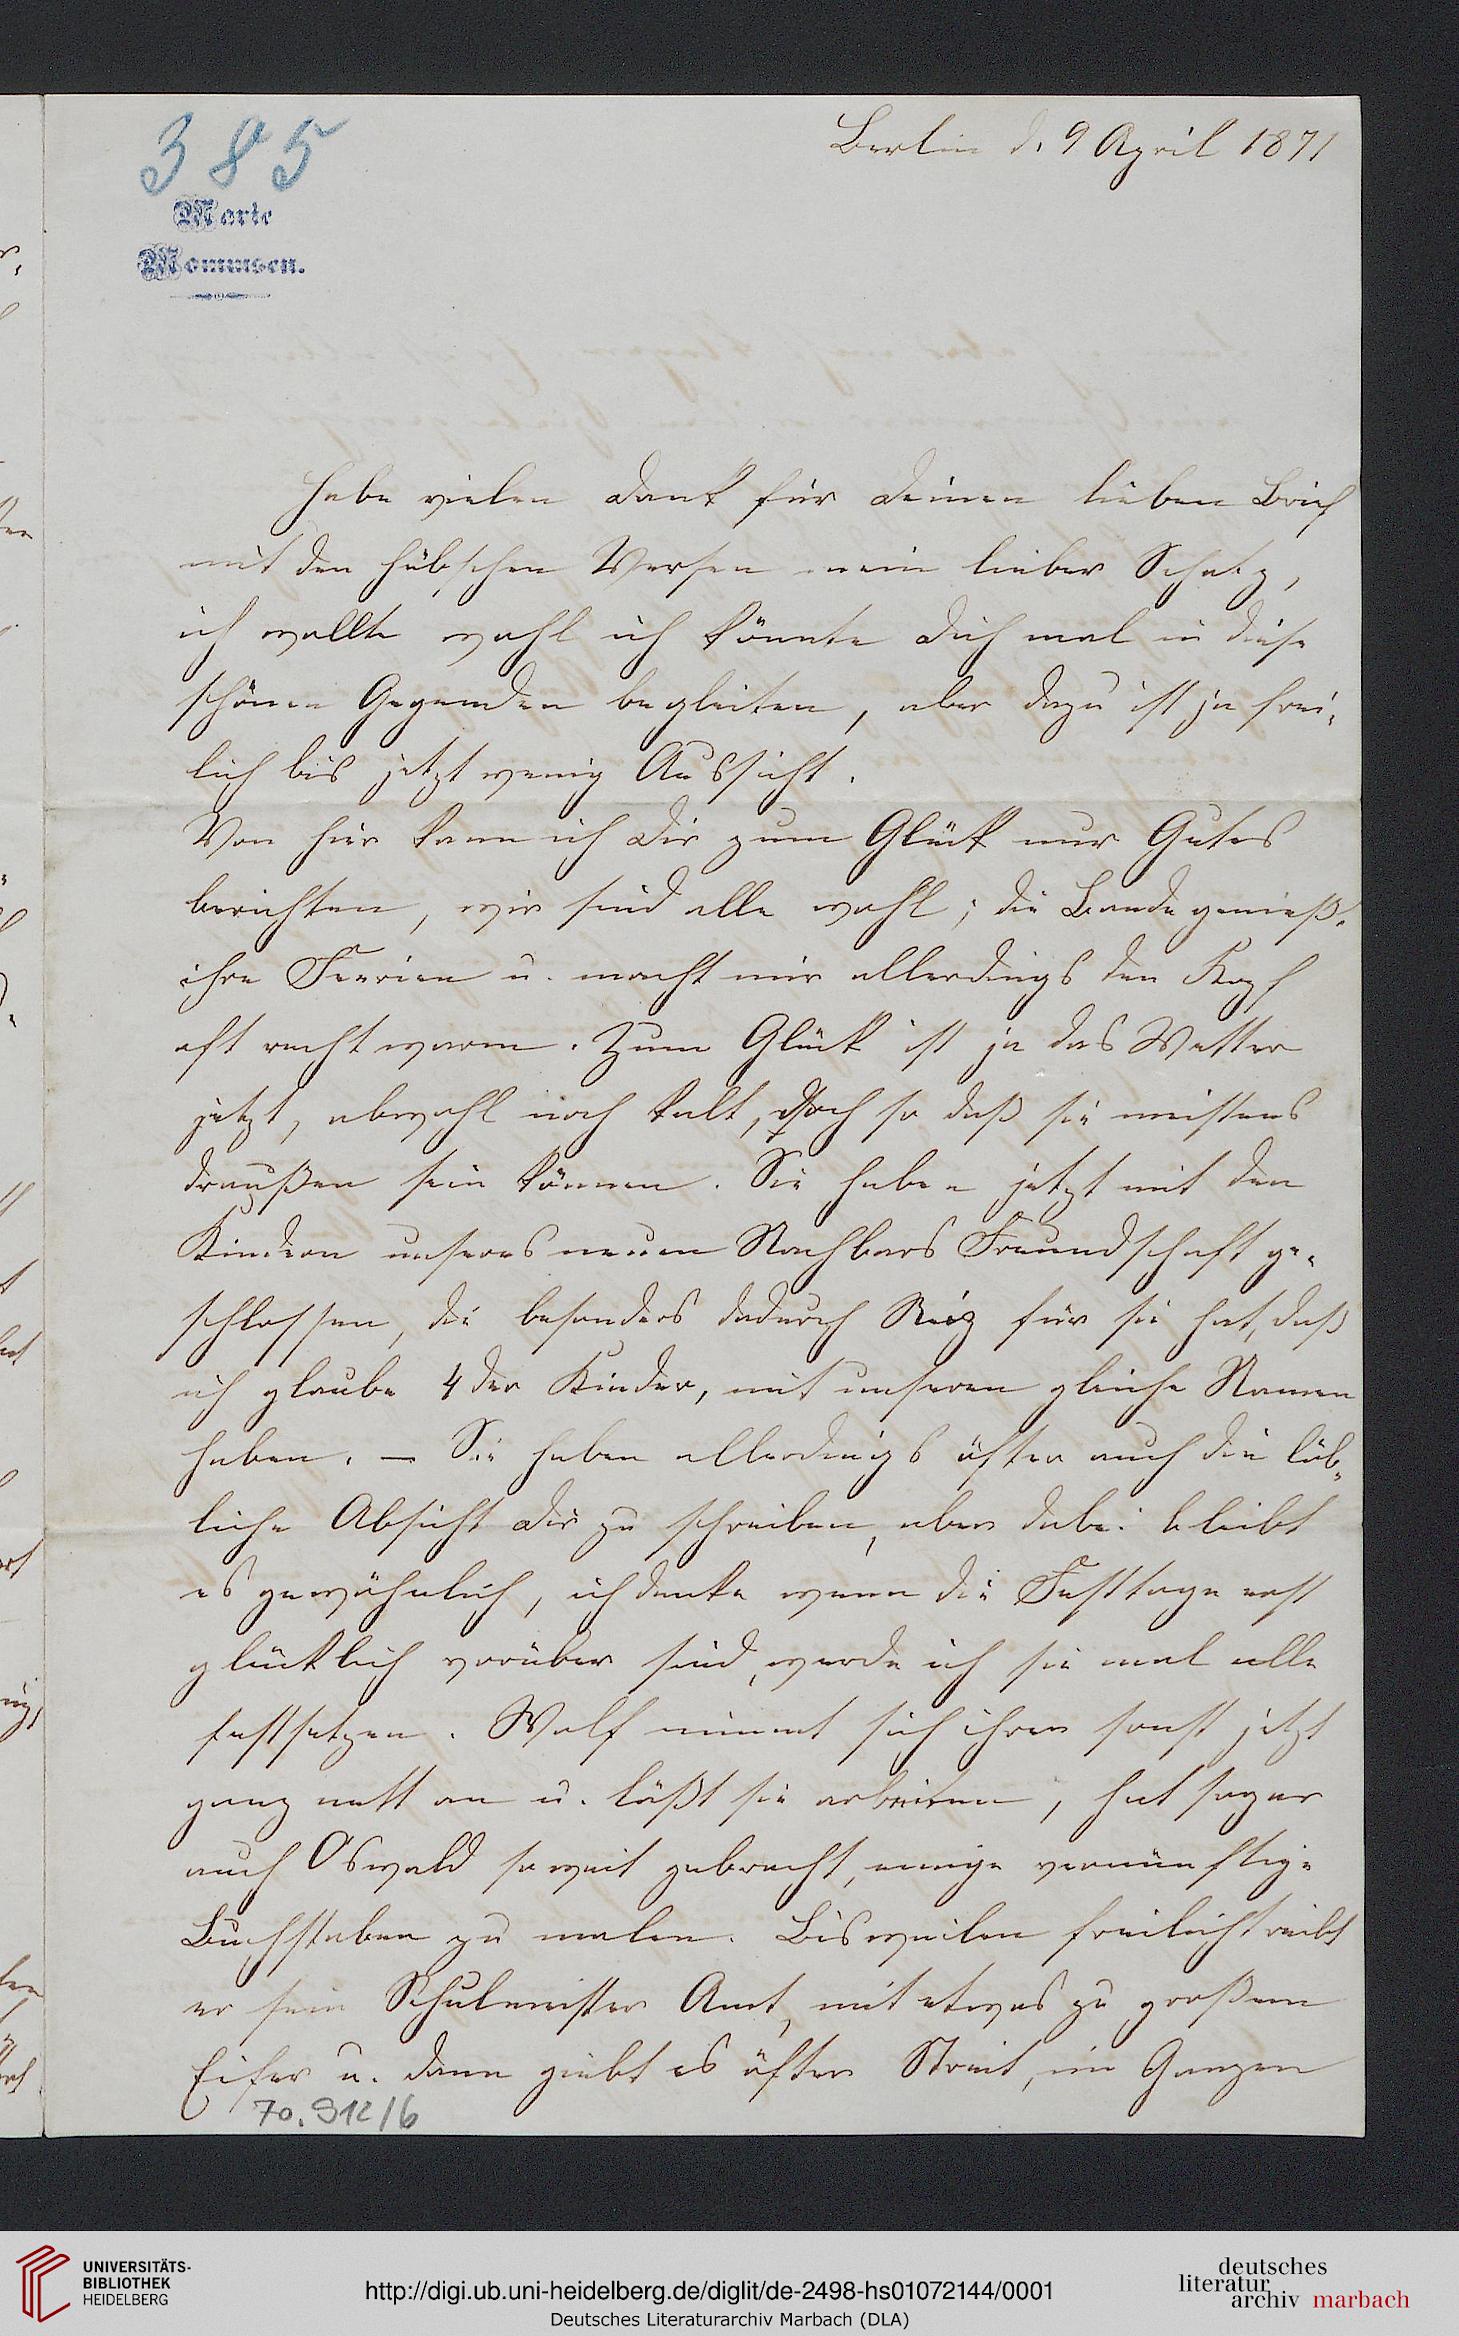 385
Berlin d. 9 April 1871
Marie
Mommsen.
Habe vielen Dank für Deinen lieben Brief
mit den hübschen Versen mein lieber Schatz,
ich wollte wohl ich könnte Dich mal in diese
schönen Gegenden begleiten, aber dazu ist ja frei-
lich bis jetzt wenig Aussicht.
Von hier kann ich Dir zum Glück nur Gutes
berichten, wir sind alle wohl; die Bande genieß.
ihre Ferien u. macht mir allerdings den Kopf
oft recht warm. Zum Glück ist ja das Wetter
jetzt, obwohl noch kalt, doch so daß sie meistens
draußen sein können. Sie haben jetzt mit den
Kindern unseres neuen Nachbars Freundschaft ge-
schlossen, die besonders dadurch Reiz für sie hat, daß
ich glaube 4 der Kinder, mit unseren gleiche Namen
haben. – Sie haben allerdings öfter auch die löb-
liche Absicht Dir zu schreiben, aber dabei bleibt
es gewöhnlich, ich denke wenn die Festtage erst
glücklich vorüber sind, werde ich sie mal alle
festsetzen. Wolf nimmt sich ihrer sonst jetzt
ganz nett an u. läßt sie arbeiten, hat sogar
auch Oswald so weit gebracht, einige vernünftige
Buchstaben zu malen. Bisweilen freilich treibt
er sein Schulmeister Amt, mit etwas zu großem
Eifer u. dann giebt es öfter Streit, im Ganzen
70.912/6
UNIVERSITÄTS-
BIBLIOTHEK
HEIDELBERG
http://digi.ub.uni-heidelberg.de/diglit/de-2498-hs01072144/0001
Deutsches Literaturarchiv Marbach (DLA)
deutsches
literatur
archiv marbach